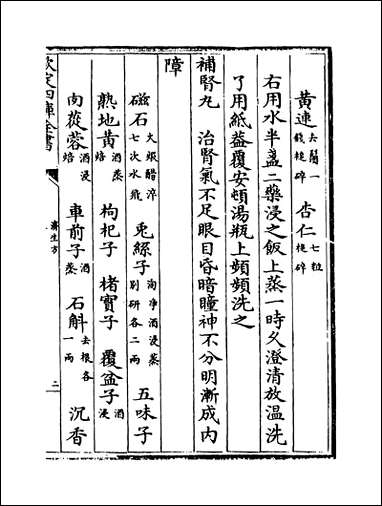 黄連去蘆一錢搥碎 杏仁七粒搥碎
右用水半盞二藥浸之飯上蒸一時久澄清放温洗
了用紙蓋覆安頓湯瓶上頻頻洗之
補腎丸 治腎氣不足眼目昏暗瞳神不分明漸成内
障
磁石火煅醋淬七次水飛 兎絲子淘净酒浸蒸别研各二兩 五味子
熟地黄酒蒸焙 枸杞子 楮實子 覆盆子酒浸
肉蓯蓉酒浸焙 車前子酒蒸 石斛去根各一兩 沉香
欽定四庫全書
濟生方
二